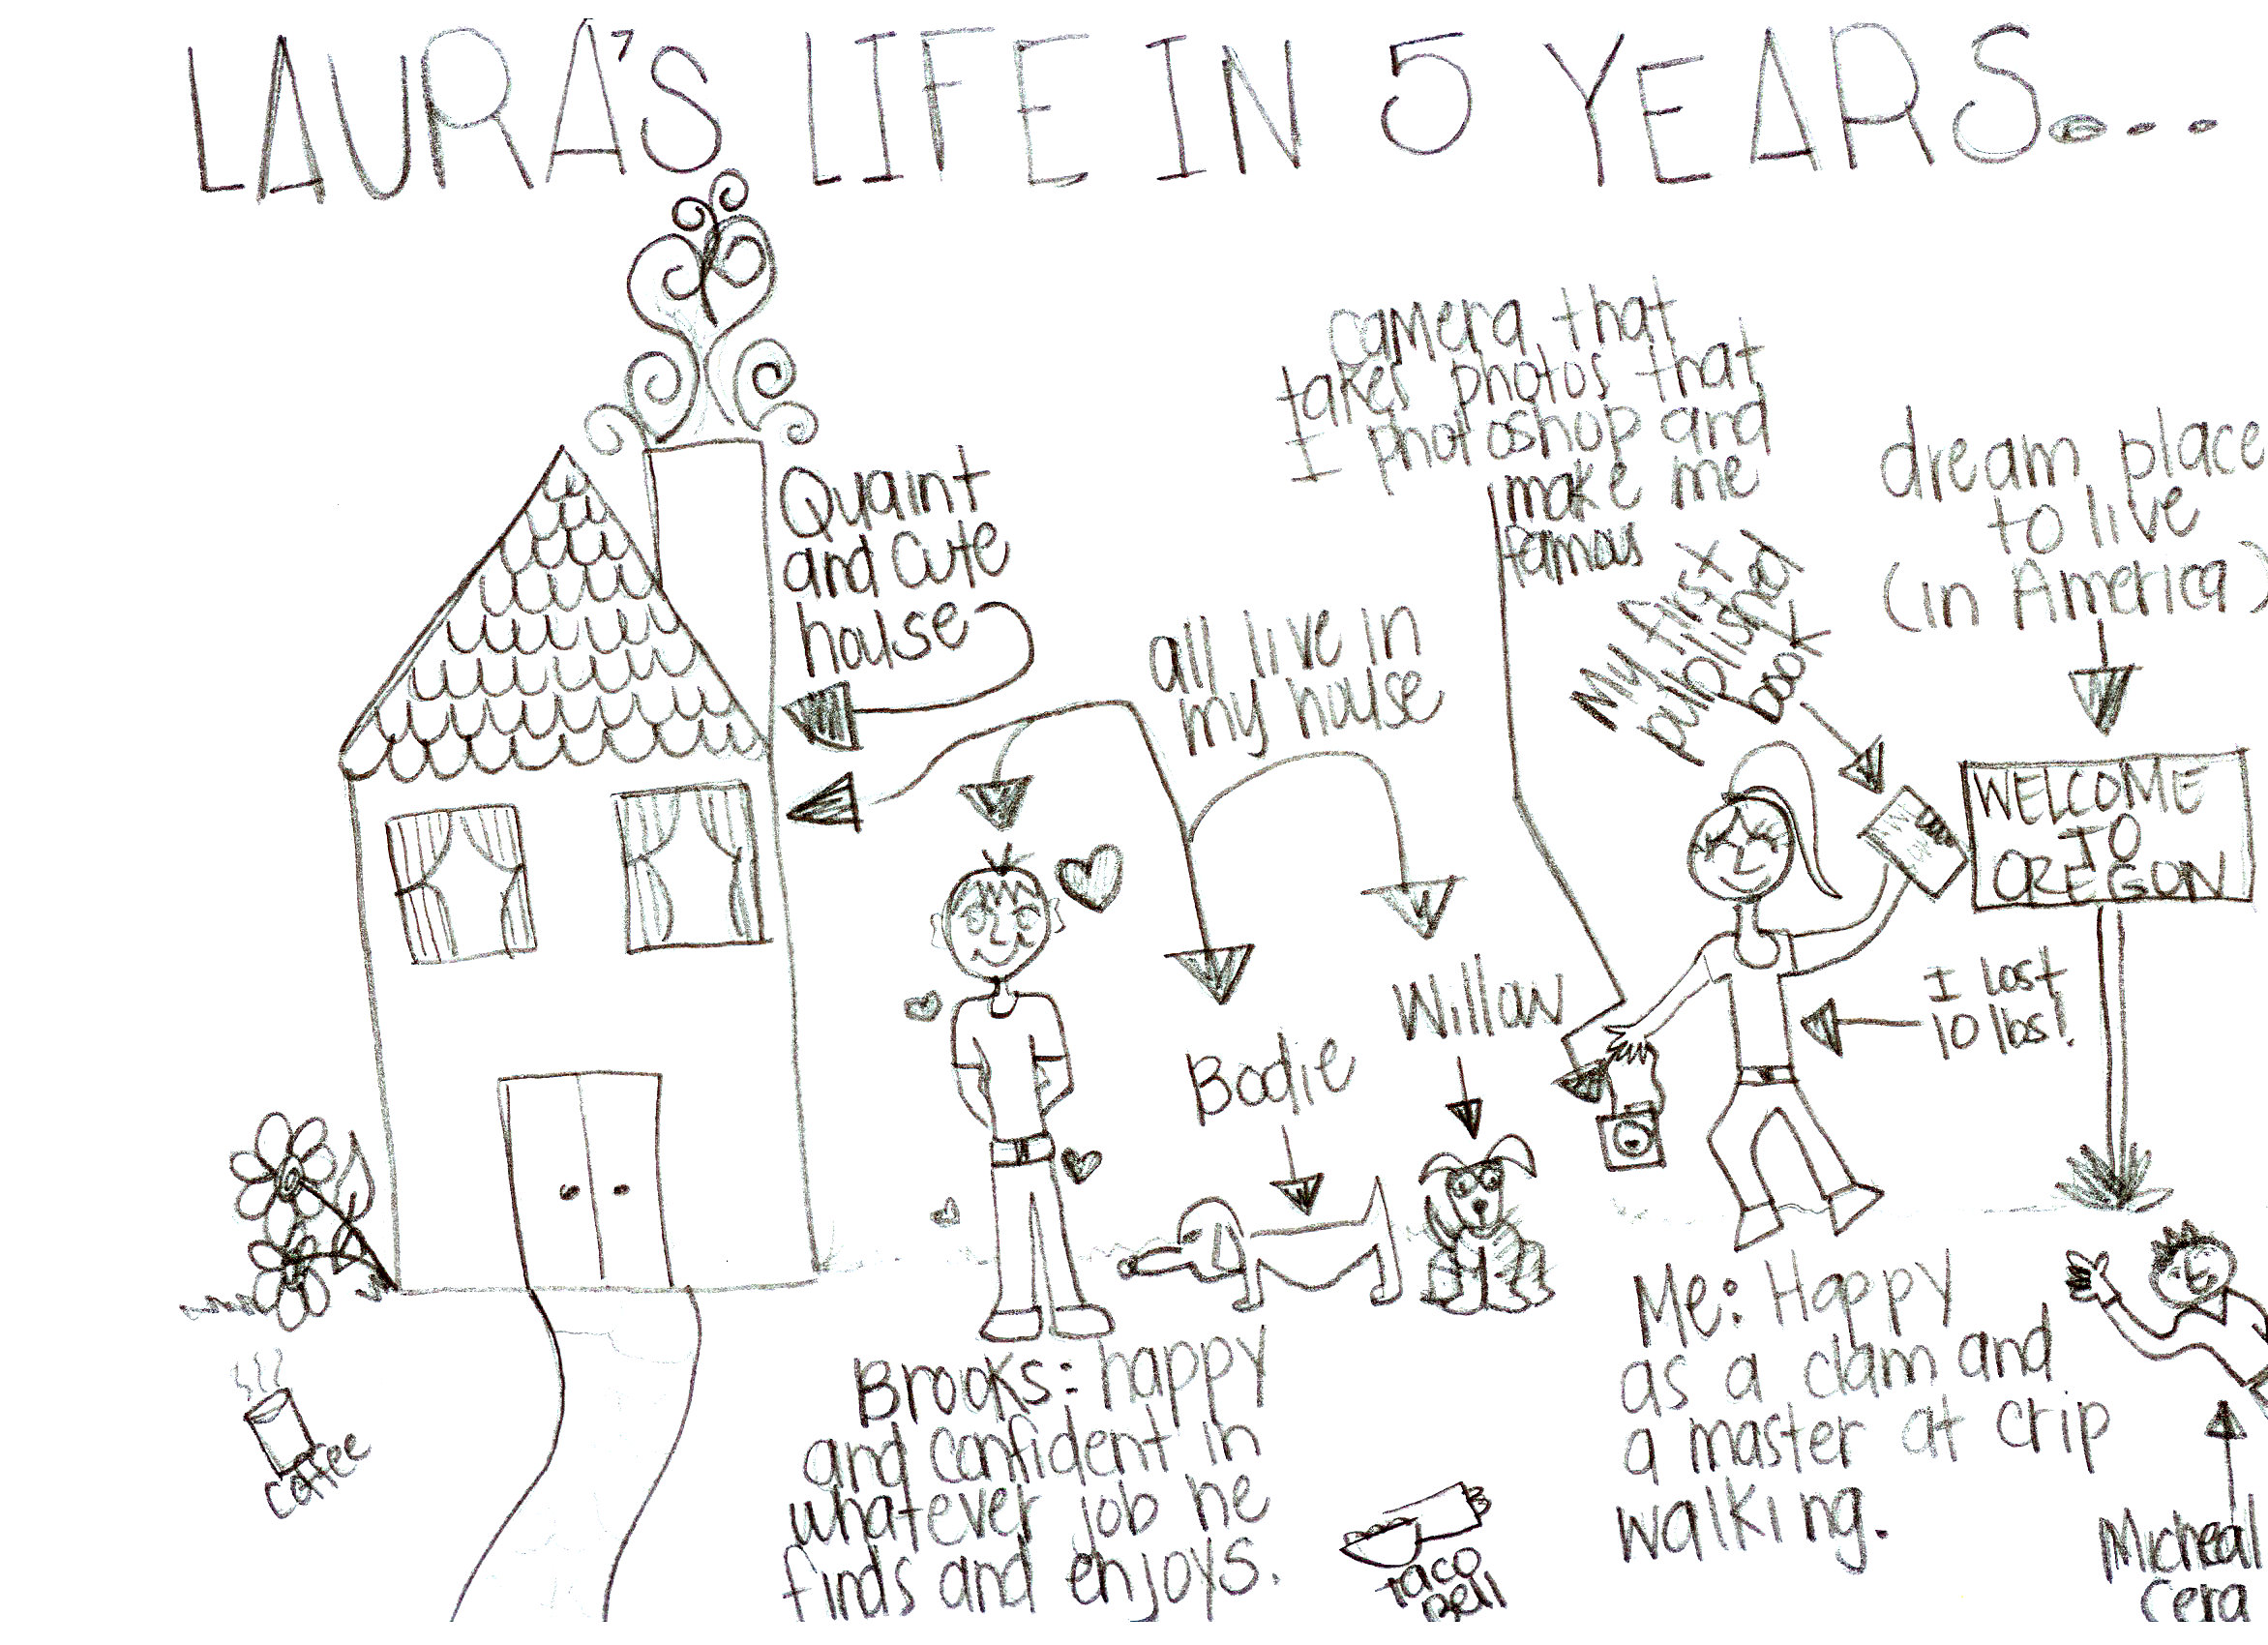 LAURA'S LIFE IN 5 YEARS...
Quaint
and cute
house
all live in
my house
camera that
takes photos that
I photoshop and
make me
famous
My first
published
book
dream place
to live
(in America)
WELCOME
TO
OREGON
I lost
10 lbs!
Willow
Bodie
Brooks: happy
and confident in
whatever job he
finds and enjoys.
Me: Happy
as a clam and
a master at crip
walking.
coffee
Taco
Bell
Micheal
Cera